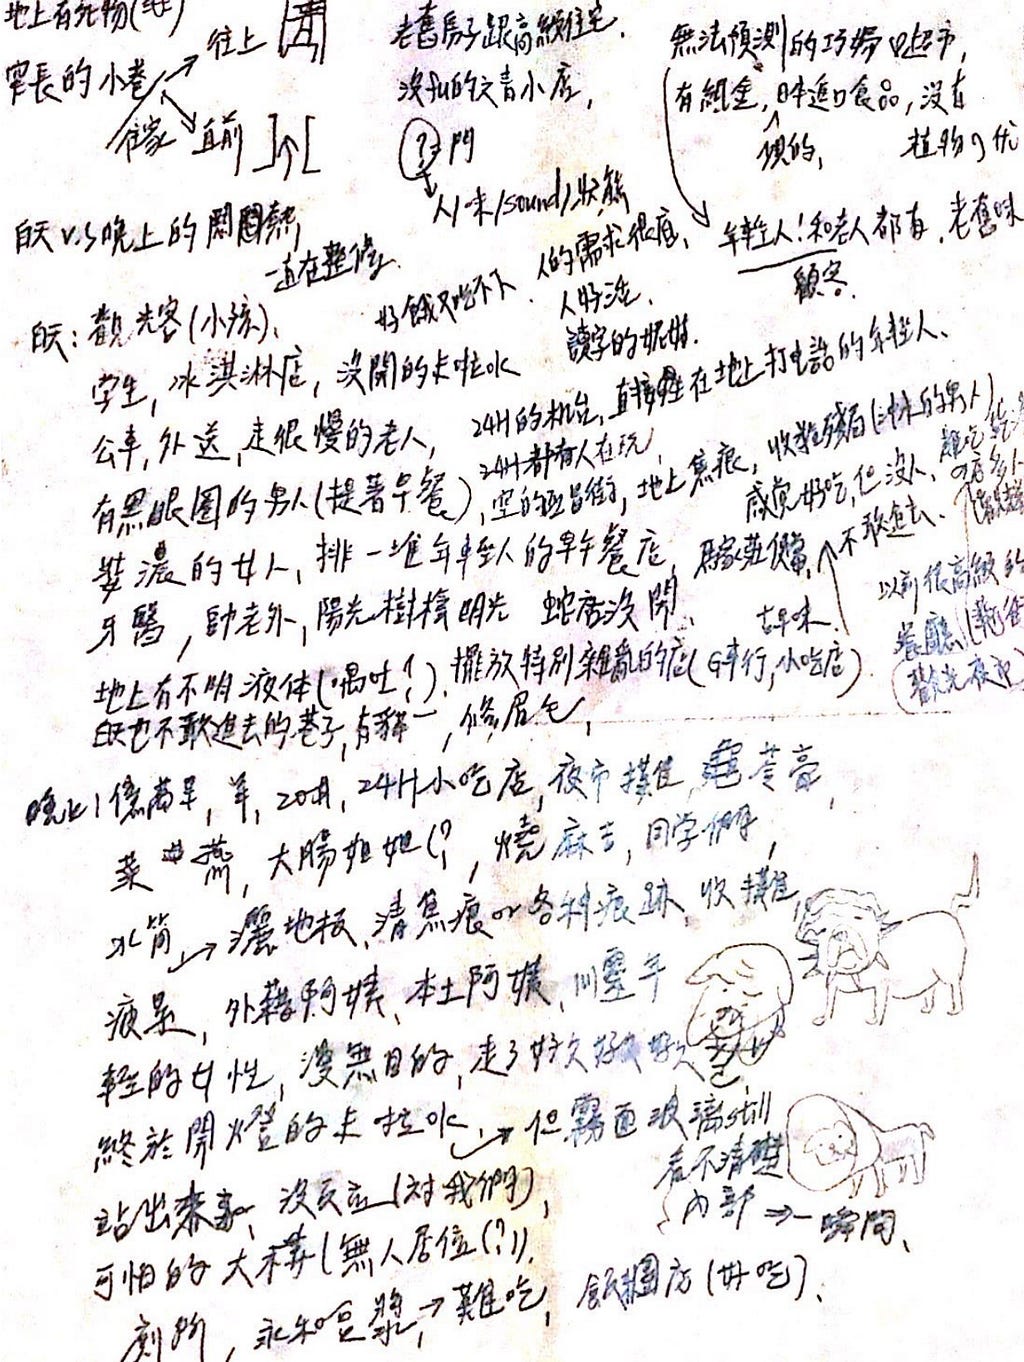 地上有死物(
窄長的小巷 往上
住家 直前
老舊房子跟高級住宅,
沒fu的文青小店,
門
人/味/sound/狀態
無法預測的巧婦口超市,
有組盒, 日本進口食品, 沒有
預的, 植物の优
年輕人!和老人都有. 老舊味
顧客.
白天v.s晚上的鬧熱,
一直在整修,
好餓又吃不下、人的需求很底,
人好活,
讀字的妮妹.
白天:觀光客(小孩)、
學生, 冰淇淋店, 沒開的卡啦水
公車, 外送, 走很慢的老人,
24H的机台, 直接坐在地上打电話的年輕人、
24H都有人在玩,
有黑眼圈的男人(提著早餐),
空的 街, 地上焦痕, 收 的男人)
感覚好吃, 但沒人、
妝濃的女人, 排一堆年輕人的早午餐店, 不敢進去、
牙醫, 帥老外, 陽光樹 明光 蛇店沒開、
古早味
以前很高級的
餐廳
觀光夜市
地上有不明液体(嘔吐?), 擺放特別雜亂的店( 車行, 小吃店)
白天也不敢進去的巷子, 有貓一, 修眉毛,
晚上:億萬里, 羊, 20月, 24H小吃店, 夜市攤, 龜苓膏,
菜燕, 大腸姐姐(?, 燒麻吉, 同学們,
水筒→灑地板、清焦痕or各種痕跡、收攤,
疲累, 外籍阿姨、本土阿姨、
輕的女性, 漫無目的, 走了好久好久好久
終於開燈的卡拉水、→但霧面玻璃still
看不清楚
內部⇒一瞬間、
站出來 、沒反应(对我們),
可怕的大楼(無人居位(?)).
廁所, 永和豆漿,→難吃, 飯糰店(好吃)、